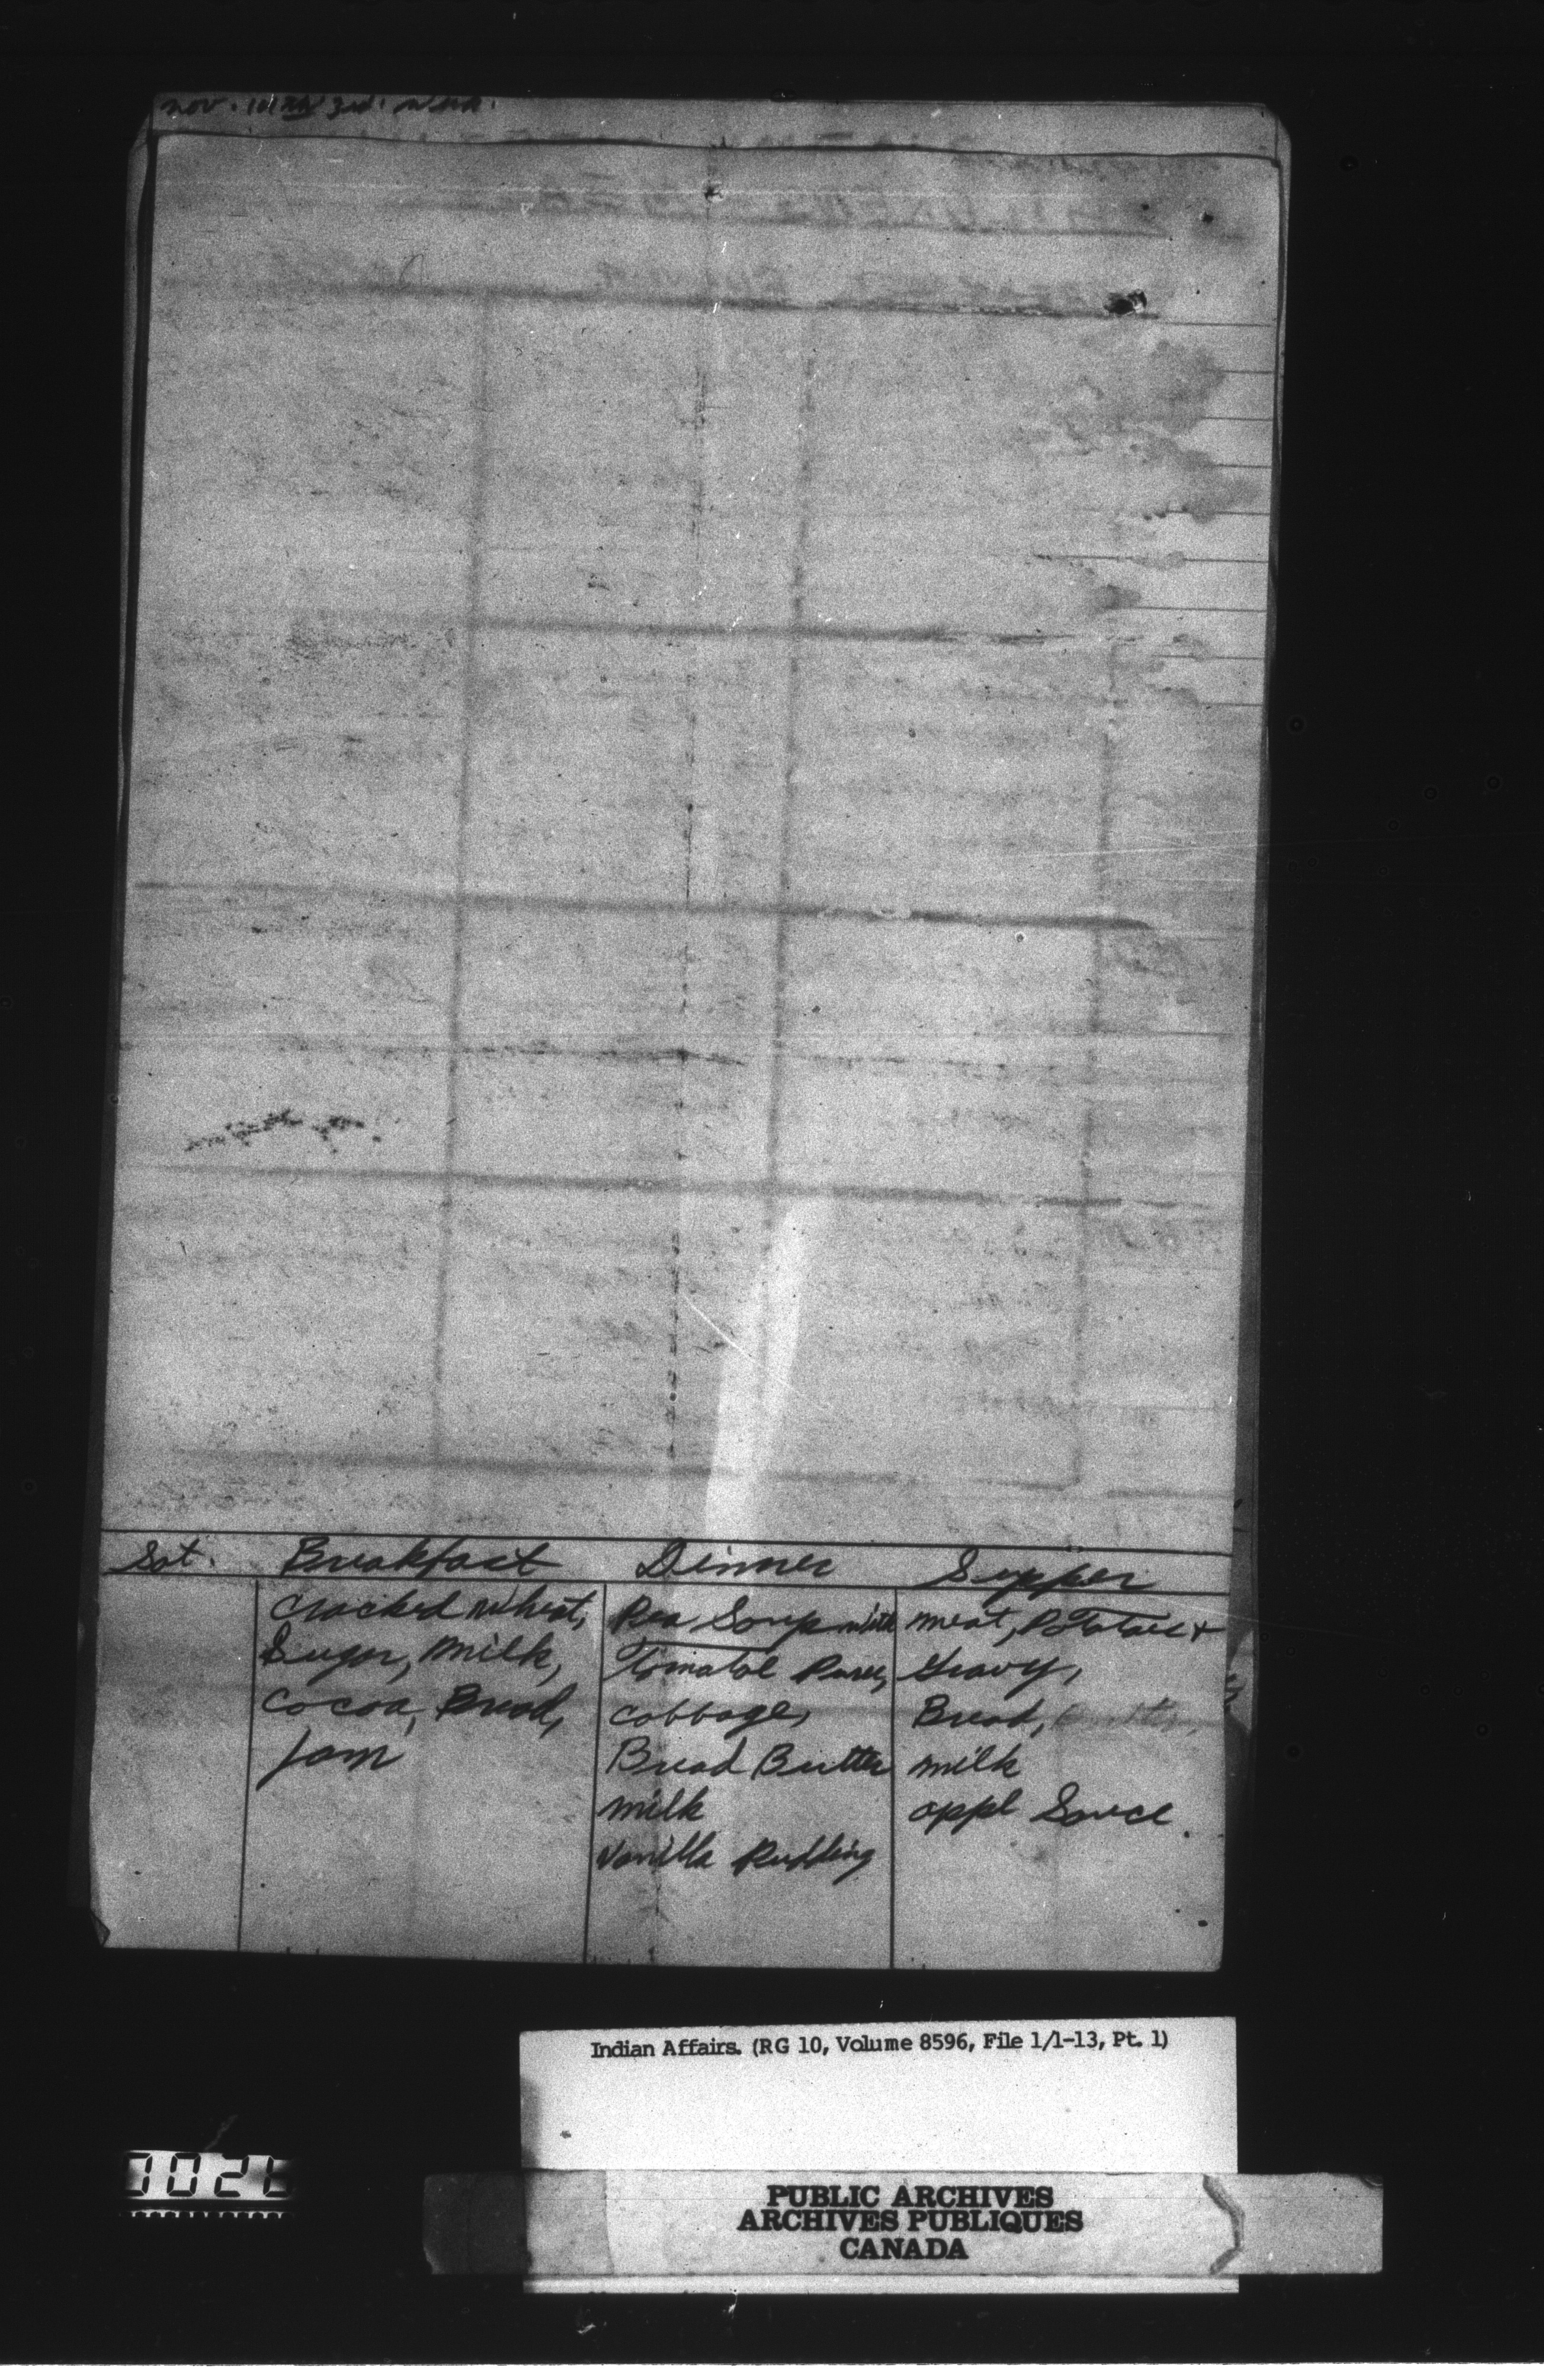 Nov. 3rd. week.
Sat. Breakfast Dinner Supper
Cracked wheat,
Sugar, milk,
Cocoa, Bread,
Jam
Pea Soup with
Tomatoe Puree,
Cabbage,
Bread Butter
milk
Vanilla Pudding
meat, Potatoes +
Gravy,
Bread, Butter,
milk
appl Sauce.
Indian Affairs. (RG 10, Volume 8596, File 1/1-13, Pt. 1)
PUBLIC ARCHIVES
ARCHIVES PUBLIQUES
CANADA